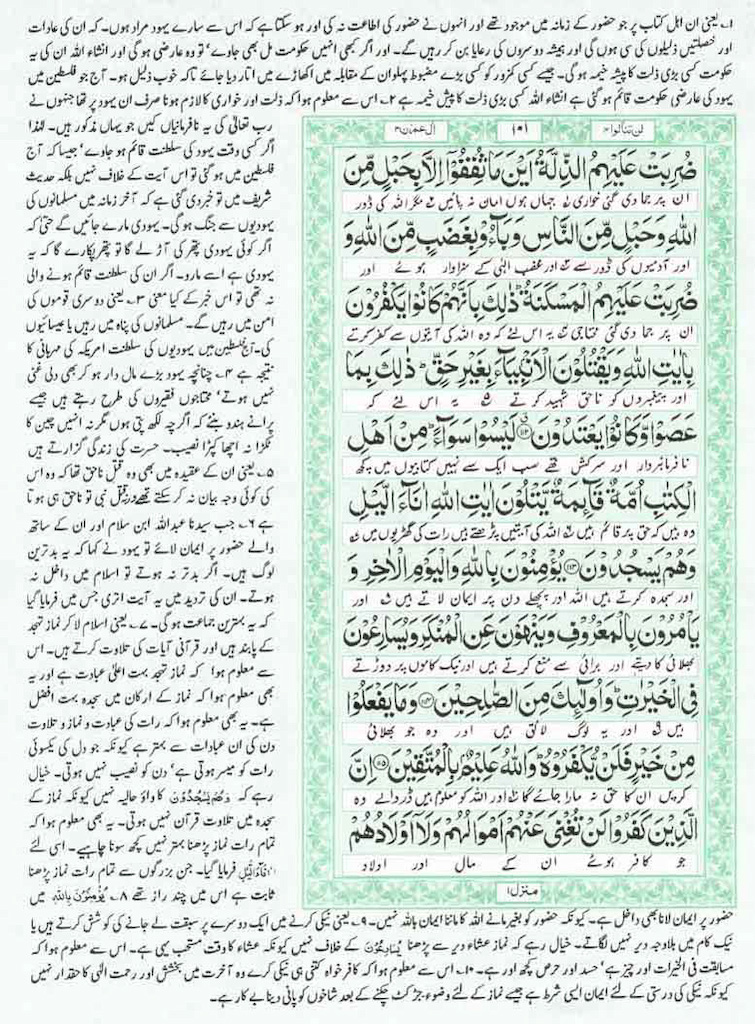 ۱۔ یعنی ان اہل کتاب پر جو حضور کے زمانہ میں موجود تھے اور انہوں نے حضور کی اطاعت نہ کی اور ہو سکتا ہے کہ اس سے سارے یہود مراد ہوں۔ کہ ان کی عادات
اور خصلتیں ذلیلوں کی سی ہوں گی اور ہمیشہ دوسروں کی رعایا بن کر رہیں گے۔ اور اگر کبھی انہیں حکومت مل بھی جاوے' تو وہ عارضی ہو گی اور انشاء اللہ ان کی یہ
حکومت کسی بڑی ذلت کا پیشہ خیمہ ہو گی۔ جیسے کسی کمزور کو کسی بڑے مضبوط پہلوان کے مقابلہ میں اکھاڑے میں اتار دیا جائے تاکہ خوب ذلیل ہو۔ آج جو فلسطین میں
یہود کی عارضی حکومت قائم ہو گئی ہے انشاء اللہ کسی بڑی ذلت کا پیش خیمہ ہے ۲۔ اس سے معلوم ہوا کہ ذلت اور خواری کا لازم ہونا صرف ان یہود پر تھا جنہوں نے
رب تعالٰی کی یہ نافرمانیاں کیں جو یہاں مذکور ہیں۔ لہٰذا
اگر کسی وقت یہود کی سلطنت قائم ہو جاوے' جیسا کہ آج
فلسطین میں ہو گئی تو اس آیت کے خلاف نہیں بلکہ حدیث
شریف میں تو خبر دی گئی ہے کہ آخر زمانہ میں مسلمانوں کی
یہودیوں سے جنگ ہو گی۔ یہودی مارے جائیں گے حتٰی کہ
اگر کوئی یہودی پتھر کی آڑ لے گا تو پتھر پکارے گا کہ یہ
یہودی ہے اسے مارو۔ اگر ان کی سلطنت قائم ہونے والی
نہ تھی تو اس خبر کے کیا معنی ۳۔ یعنی دوسری قوموں کی
امن میں رہیں گے۔ مسلمانوں کی پناہ میں رہیں یا عیسائیوں
کی۔ آج فلسطین میں یہودیوں کی سلطنت امریکہ کی مہربانی کا
نتیجہ ہے ۴۔ چنانچہ یہود بڑے مال دار ہو کر بھی دلی غنی
نہیں ہوتے' محتاجوں فقیروں کی طرح رہتے ہیں جیسے
پرانے ہندو بنئے کہ اگرچہ لکھ پتی ہوں مگر نہ انہیں چین کا
ٹکڑا نہ اچھا کپڑا نصیب۔ حسرت کی زندگی گزارتے ہیں
۵۔ یعنی ان کے عقیدہ میں بھی وہ قتل ناحق تھا کہ وہ اس
کی کوئی وجہ بیان نہ کر سکتے تھے ورنہ قتل نبی تو ناحق ہی ہوتا
ہے ۶۔ جب سیدنا عبداللہ ابن سلام اور ان کے ساتھ
والے حضور پر ایمان لائے تو یہود نے کہا کہ یہ بدترین
لوگ ہیں۔ اگر بدتر نہ ہوتے تو اسلام میں داخل نہ
ہوتے۔ ان کی تردید میں یہ آیت اتری جس میں فرمایا گیا
کہ یہ بہترین جماعت ہو گی۔ ۷۔ یعنی اسلام لا کر نماز تہجد
کے پابند ہیں اور قرآنی آیات کی تلاوت کرتے ہیں۔ اس
سے معلوم ہوا کہ نماز تہجد بہت اعلٰی عبادت ہے اور یہ
بھی معلوم ہوا کہ نماز کے ارکان میں سجدہ بہت افضل
ہے۔ یہ بھی معلوم ہوا کہ رات کی عبادت و نماز و تلاوت
دن کی ان عبادات سے بہتر ہے کیونکہ جو دل کی یکسوئی
رات کو میسر ہوتی ہے' دن کو نصیب نہیں ہوتی۔ خیال
رہے کہ وَهُمْ يَسْجُدُوْنَ کا واؤ حالیہ نہیں کیونکہ نماز کے
سجدہ میں تلاوت قرآن نہیں ہوتی۔ یہ بھی معلوم ہوا کہ
تمام رات نماز پڑھنا بہتر نہیں کچھ سونا چاہیے۔ اسی لئے
اٰنَآءَ الَّيْلِ فرمایا گیا۔ جن بزرگوں سے تمام رات نماز پڑھنا
ثابت ہے اس میں چند راز تھے ۸۔ يُؤْمِنُوْنَ بِاللّٰهِ میں
لن تنالوا ۴ ۱۰۱ اٰل عمرٰن ۳
ضُرِبَتْ عَلَيْهِمُ الذِّلَّةُ اَيْنَ مَا ثُقِفُوْۤا اِلَّا بِحَبْلٍ مِّنَ
ان پر جما دی گئی خواری جہاں ہوں امان نہ پائیں مگر اللہ کی ڈور
اللّٰهِ وَحَبْلٍ مِّنَ النَّاسِ وَبَآءُوْ بِغَضَبٍ مِّنَ اللّٰهِ وَ
اور آدمیوں کی ڈور سے اور غضب الٰہی کے سزاوار ہوئے اور
ضُرِبَتْ عَلَيْهِمُ الْمَسْكَنَةُ ذٰلِكَ بِاَنَّهُمْ كَانُوْا يَكْفُرُوْنَ
ان پر جما دی گئی محتاجی یہ اس لئے کہ وہ اللہ کی آیتوں سے کفر کرتے
بِاٰيٰتِ اللّٰهِ وَيَقْتُلُوْنَ الْاَنْۢبِيَآءَ بِغَيْرِ حَقٍّ ذٰلِكَ بِمَا
اور پیغمبروں کو ناحق شہید کرتے یہ اس لئے کہ
عَصَوْا وَّكَانُوْا يَعْتَدُوْنَ ۱۱۲ لَيْسُوْا سَوَآءً مِنْ اَهْلِ
نافرمانبردار اور سرکش تھے سب ایک سے نہیں کتابیوں میں کچھ
الْكِتٰبِ اُمَّةٌ قَآئِمَةٌ يَّتْلُوْنَ اٰيٰتِ اللّٰهِ اٰنَآءَ الَّيْلِ
وہ ہیں کہ حق پر قائم ہیں اللہ کی آیتیں پڑھتے ہیں رات کی گھڑیوں میں
وَهُمْ يَسْجُدُوْنَ ۱۱۳ يُؤْمِنُوْنَ بِاللّٰهِ وَالْيَوْمِ الْاٰخِرِ وَ
اور سجدہ کرتے ہیں اللہ اور پچھلے دن پر ایمان لاتے ہیں اور
يَاْمُرُوْنَ بِالْمَعْرُوْفِ وَيَنْهَوْنَ عَنِ الْمُنْكَرِ وَيُسَارِعُوْنَ
بھلائی کا حکم دیتے اور برائی سے منع کرتے ہیں اور نیک کاموں پر دوڑتے
فِى الْخَيْرٰتِ وَاُولٰٓئِكَ مِنَ الصّٰلِحِيْنَ ۱۱۴ وَمَا يَفْعَلُوْا
ہیں اور یہ لوگ لائق ہیں اور وہ جو بھلائی
مِنْ خَيْرٍ فَلَنْ يُّكْفَرُوْهُ وَاللّٰهُ عَلِيْمٌۢ بِالْمُتَّقِيْنَ ۱۱۵ اِنَّ
کریں ان کا حق نہ مارا جائے گا اور اللہ کو معلوم ہیں ڈر والے وہ
الَّذِيْنَ كَفَرُوْا لَنْ تُغْنِىَ عَنْهُمْ اَمْوَالُهُمْ وَلَآ اَوْلَادُهُمْ
جو کافر ہوئے ان کے مال اور اولاد
منزل ۱
حضور پر ایمان لانا بھی داخل ہے۔ کیونکہ حضور کو بغیر مانے اللہ کا ماننا ایمان باللہ نہیں۔ ۹۔ یعنی نیکی کرنے میں ایک دوسرے پر سبقت لے جانے کی کوشش کرتے ہیں یا
نیک کام میں بلاوجہ دیر نہیں لگاتے۔ خیال رہے کہ نماز عشاء دیر سے پڑھنا يُسَارِعُوْنَ کے خلاف نہیں کیونکہ عشاء کا وقت مستحب یہی ہے۔ اس سے معلوم ہوا کہ
مسابقت فی الخیرات اور چیز ہے' حسد اور حرص کچھ اور ہے۔ ۱۰۔ اس سے معلوم ہوا کہ کافر خواہ کتنی ہی نیکی کرے وہ آخرت میں بخشش اور رحمت الٰہی کا حقدار نہیں
کیونکہ نیکی کی درستی کے لئے ایمان ایسی شرط ہے جیسے نماز کے لئے وضوء۔ جڑ کٹ چکنے کے بعد شاخوں کو پانی دینا بے کار ہے۔